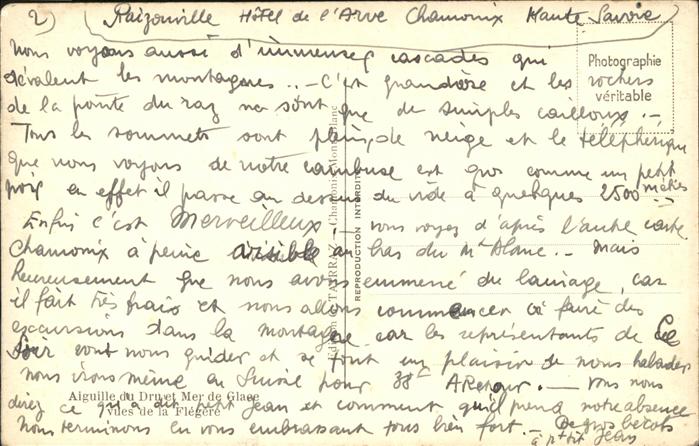 2) (Raizouville Hôtel de l'Arve Chamonix Haute Savoie)
nous voyons aussi d'immenses cascades qui
dévalent les montagnes.. - C'est grandiose et les rochers
de la pointe du raz ne sont que de simples cailloux. -
Tous les sommets sont pleins de neige et le téléphérique
que nous voyons de notre cambuse est gros comme un petit
pois en effet il passe au dessus du vide à quelques 2500 mètres
Enfin c'est Merveilleux vous voyez d'après l'autre carte
Chamonix à peine visible au bas du Mt Blanc. - Mais
heureusement que nous avons emmené du lainage, car
il fait très frais et nous allons commencer à faire des
excursions dans la montagne car les représentants de Ce
Soir vont nous guider et se font un plaisir de nous balader
nous irons même en Suisse pour 38F A Retour. - Vous nous
direz ce qu'a dit petit Jean et comment qu'il prend notre absence
Nous terminons en vous embrassant tous bien fort. - De gros bécots
à ptit Jean
Photographie
véritable
Édition TAIRRAZ - Chamonix-Mont-Blanc
REPRODUCTION INTERDITE
Aiguille du Dru et Mer de Glace
vues de la Flégère